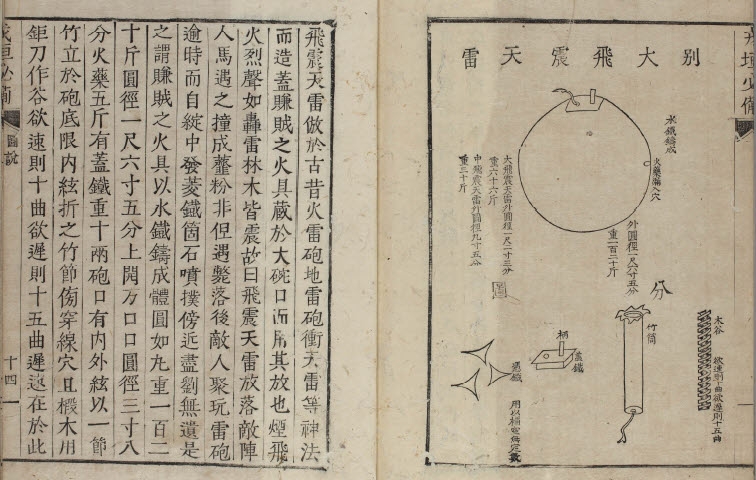 別大飛震天雷
水鐵鑄成
火藥灌入穴
外圓徑一尺六寸五分
重一百二十斤
大飛震天雷外圓徑一尺一寸三分
重六十六斤
中飛震天雷外圓徑九寸五分
重三十斤
分
木谷
欲速則十曲欲遲則十五曲
竹筒
柄
蓋鐵
菱鐵
用以稱容無定數
飛震天雷倣於古昔火雷砲地雷砲衝天雷等神法
而造蓋賺賊之火具蔵於大碗口而用其放也煙飛
火烈聲如轟雷林木皆震故曰飛震天雷放落敵陣
人馬遇之撞成虀粉非但遇斃落後敵人聚玩雷砲
逾時而自綻中發菱鐵箇石噴撲傍近盡劉無遺是
之謂賺賊之火具以水鐵鑄成體圓如丸重一百二
十斤圓徑一尺六寸五分上開方口口圓徑三寸八
分火藥五斤有蓋鐵重十兩砲口有内外絃以一節
竹立於砲底限内絃折之竹節傍穿線穴且椴木用
鉅刀作谷欲速則十曲欲遲則十五曲遲速在於此
戎垣必備
圖說
十四